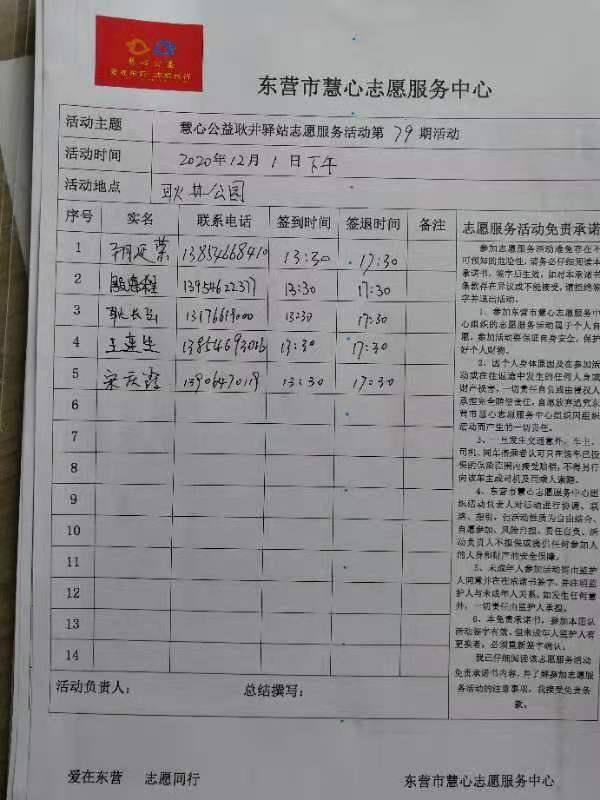 慧心公益
爱在东营 志愿同行
东营市慧心志愿服务中心
活动主题 慧心公益耿井驿站志愿服务活动第79期活动
活动时间 2020年12月1日下午
活动地点 耿井公园
序号 实名 联系电话 签到时间 签退时间 备注
1 13854668410 13:30 17:30
2 13954622377 13:30 17:30
3 耿长 13176619000 13:30 17:30
4 王连生 13854693016 13:30 17:30
5 宋庆 13906470119 13:30 17:30
6
7
8
9
10
11
12
13
14
活动负责人： 总结撰写：
志愿服务活动免责承诺
参加志愿服务活动难免存在不
可预知的危险性，请务必仔细阅读本
承诺书，签字后生效，如对本承诺书
条款存在异议或不能接受，请拒绝签
字并退出活动。
1、参加东营市慧心志愿服务中
心组织的志愿服务活动属于个人自
愿，参加活动要保证自身安全，保护
好个人财物。
2、因个人身体原因及在参加活
动或在往返途中发生的任何人身或
财产损害，一切责任自负或由侵权人
承担完全赔偿责任，自愿放弃追究东
营市慧心志愿服务中心组织因组织
活动而产生的一切责任。
3、一旦发生交通意外，车主、
司机、同车搭乘者认可只在该车已投
保的保险范围内接受赔偿，不得另行
向该车主或司机及同乘人索赔。
4、东营市慧心志愿服务中心组
织活动负责人对活动进行协调、联
络、指引，但活动性质为自由结合、
自愿参加、风险自担、责任自负，活
动负责人不担保或提供任何参加人
的人身和财产的安全保障。
5、未成年人参加活动需由监护
人同意并在在承诺书签字，并注明监
护人与未成年人关系，如发生任何意
外，一切责任由监护人承担。
6、本免责承诺书，参加本团队
活动签字有效，但未成年人监护人有
更换者，必须重新签字确认。
我已仔细阅读该志愿服务活动
免责承诺书内容，并了解参加志愿服
务活动的注意事项，我接受免责条
款。
爱在东营 志愿同行 东营市慧心志愿服务中心